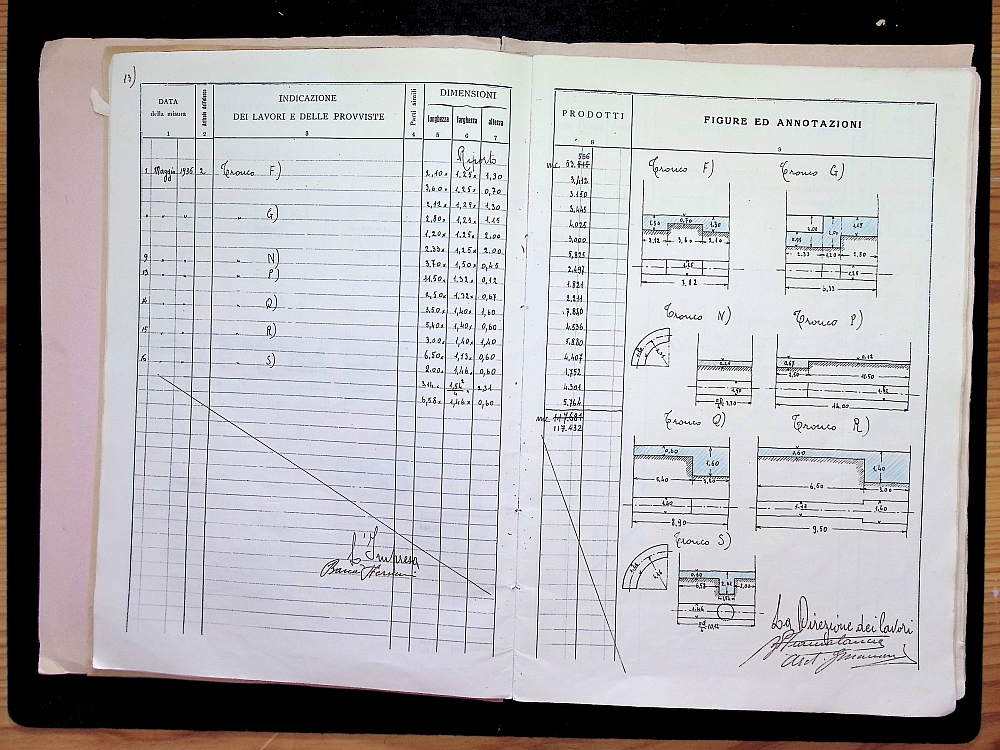 13)
DATA
della misura
INDICAZIONE
DEI LAVORI E DELLE PROVVISTE
Parti simili
DIMENSIONI
lunghezza
larghezza
altezza
1 2 3 4 5 6 7
Riporto
1 Maggio 1936 2 Tronco F) 2,10× 1,25× 1,30
3,60× 1,25× 0,70
2,12× 1,25× 1,30
" " " " G) 2,80× 1,25× 1,15
1,20× 1,25× 2.00
2.33× 1,25× 2.00
9 " " " N) 3,70× 1,50× 0,45
13 " " " P) 11,50× 1,32× 0,12
2,50× 1,32× 0,67
14 " " " Q) 3,50× 1,40× 1,60
5,40× 1,40× 0,60
15 " " " R) 3.00× 1,40× 1,40
6,50× 1,13× 0,60
16 " " " S) 2.00× 1,46× 0,60
3.14×
6,58× 1,46× 0,60
L'Impresa
PRODOTTI
8
566
mc.
3,412
3.150
3,445
4.025
3,000
5,825
2.497
1.821
2.211
7.840
4.536
5.880
4.407
1,752
4.301
5.764
mc. 117.681
117.432
FIGURE ED ANNOTAZIONI
9
Tronco F)
Tronco G)
1,30 0,70 1,30
2,12 3,60 2.10
1,25
7,82
2.00 2,00 1,15
2.33 1,20 2,80
1,25
6,33
Tronco N)
Tronco P)
0,45
1,50
0,67 0,12
2,50 11,50
1,32
14,00
Tronco Q)
Tronco R)
0,60 1,60
5,40 3,50
1,40
8,90
0,60 1,40
6,50 3,00
1,13 1,40
9,50
Tronco S)
0,60
6,58 2,00
1,46
La Direzione dei lavori